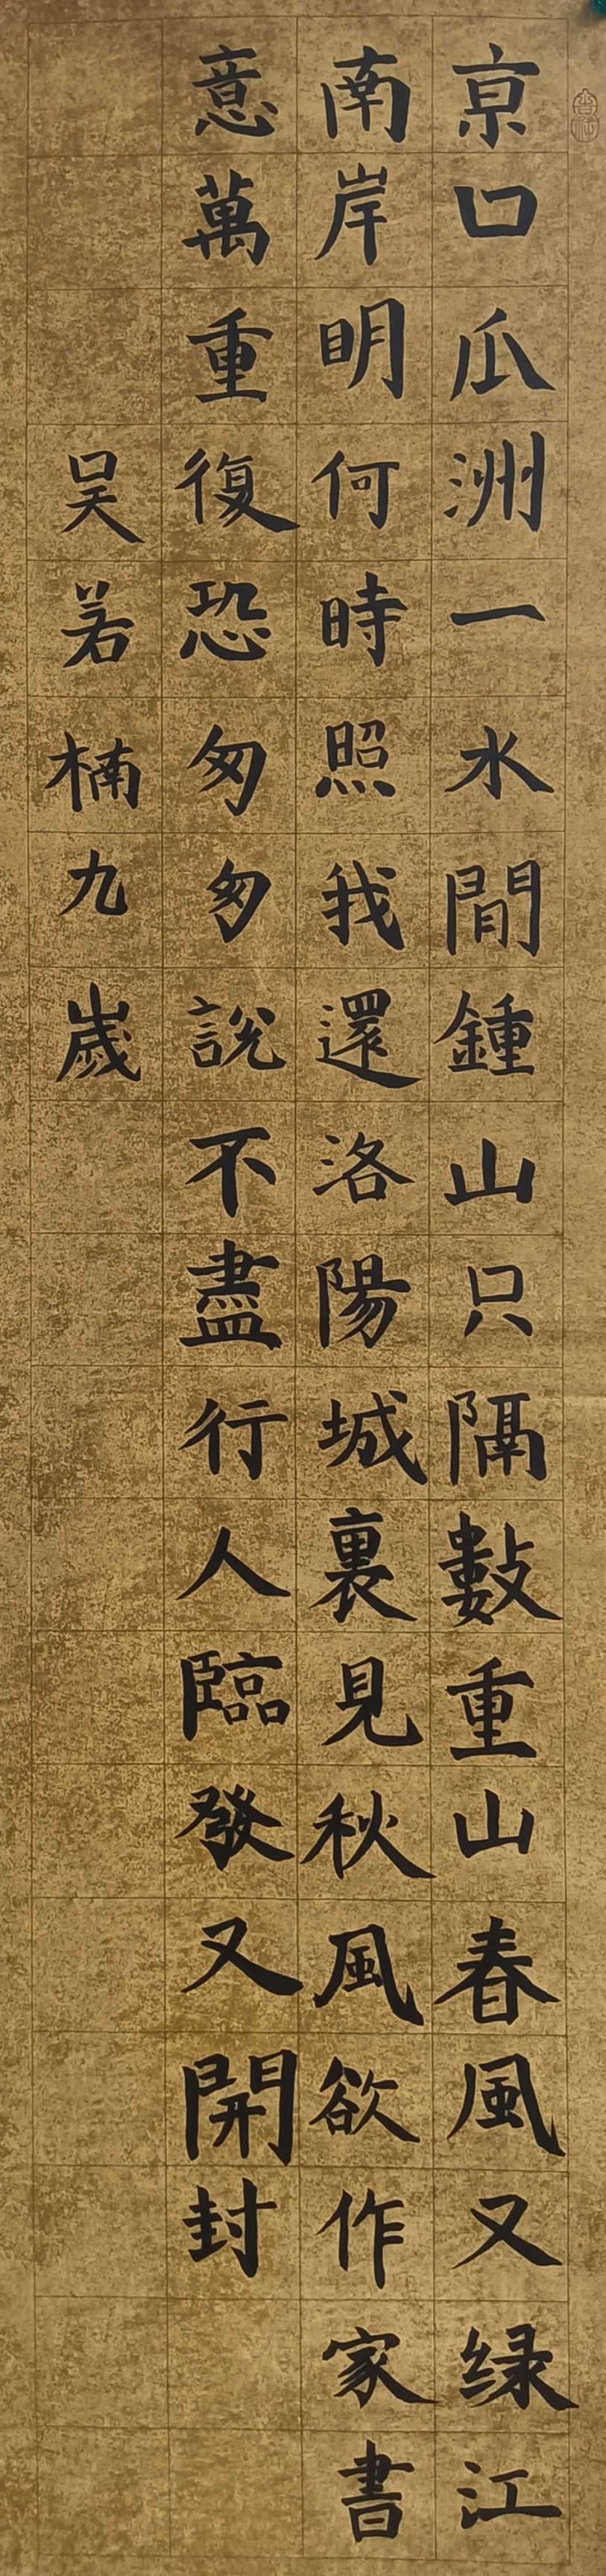 京口瓜洲一水間鍾山只隔數重山春風又绿江
南岸明何時照我還洛陽城裏見秋風欲作家書
意萬重復恐匆匆說不盡行人臨發又開封
吴若楠九歲